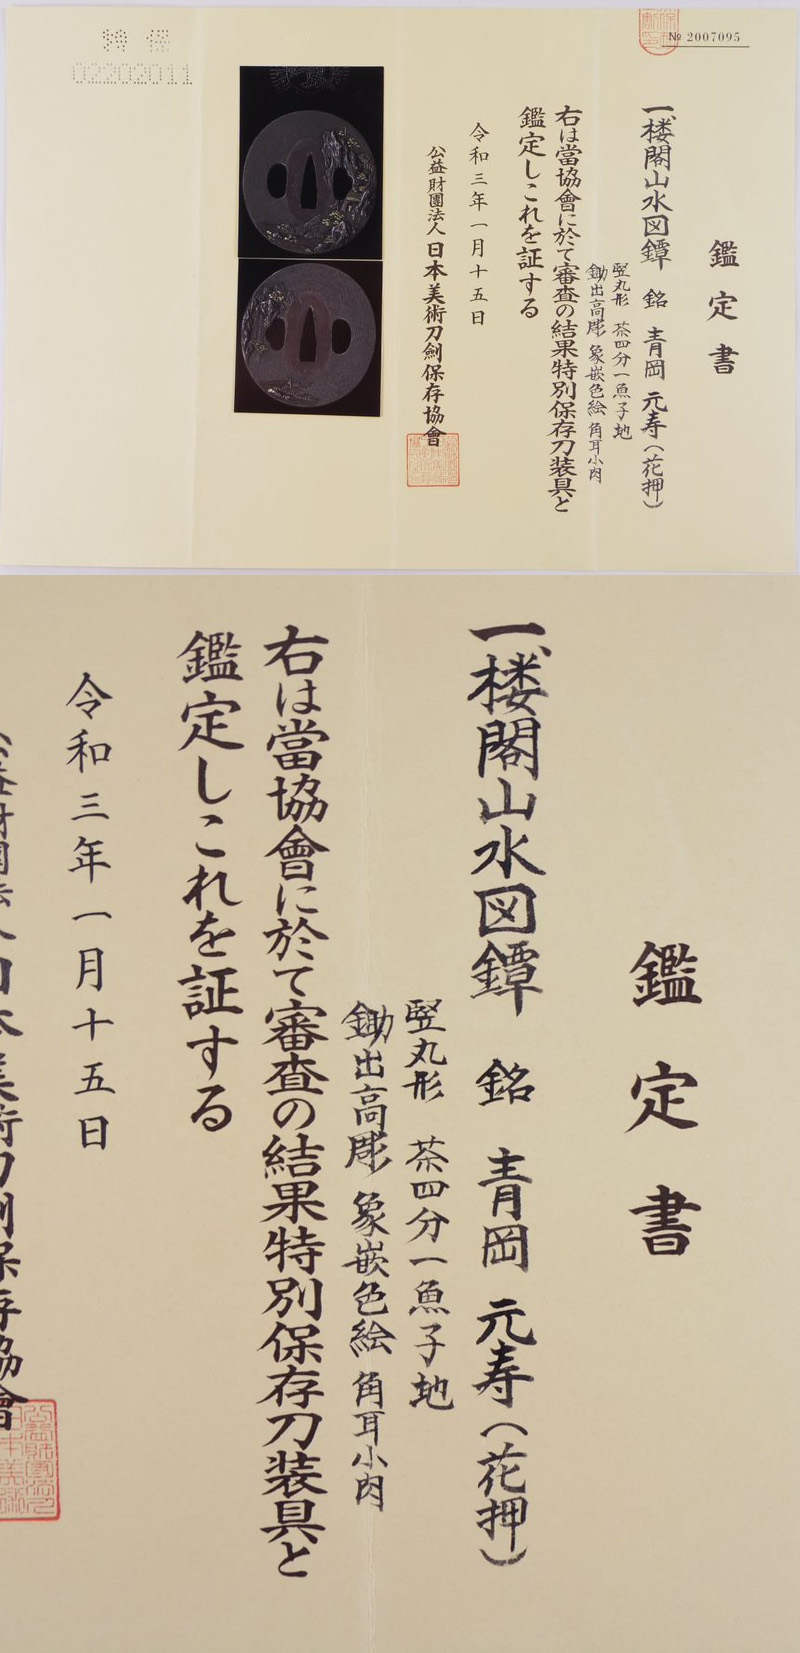 № 2007095
特 保
02202011
鑑定書
一、楼閣山水図鐔 銘 青岡 元寿（花押）
竪丸形 茶四分一魚子地
鋤出高彫 象嵌色絵 角耳小肉
右は當協會に於て審査の結果特別保存刀装具と
鑑定しこれを証する
令和三年一月十五日
公益財團法人 日本美術刀劍保存協會
鑑定書
一、楼閣山水図鐔 銘 青岡 元寿（花押）
竪丸形 茶四分一魚子地
鋤出高彫 象嵌色絵 角耳小肉
右は當協會に於て審査の結果特別保存刀装具と
鑑定しこれを証する
令和三年一月十五日
公益財團法人 日本美術刀劍保存協會